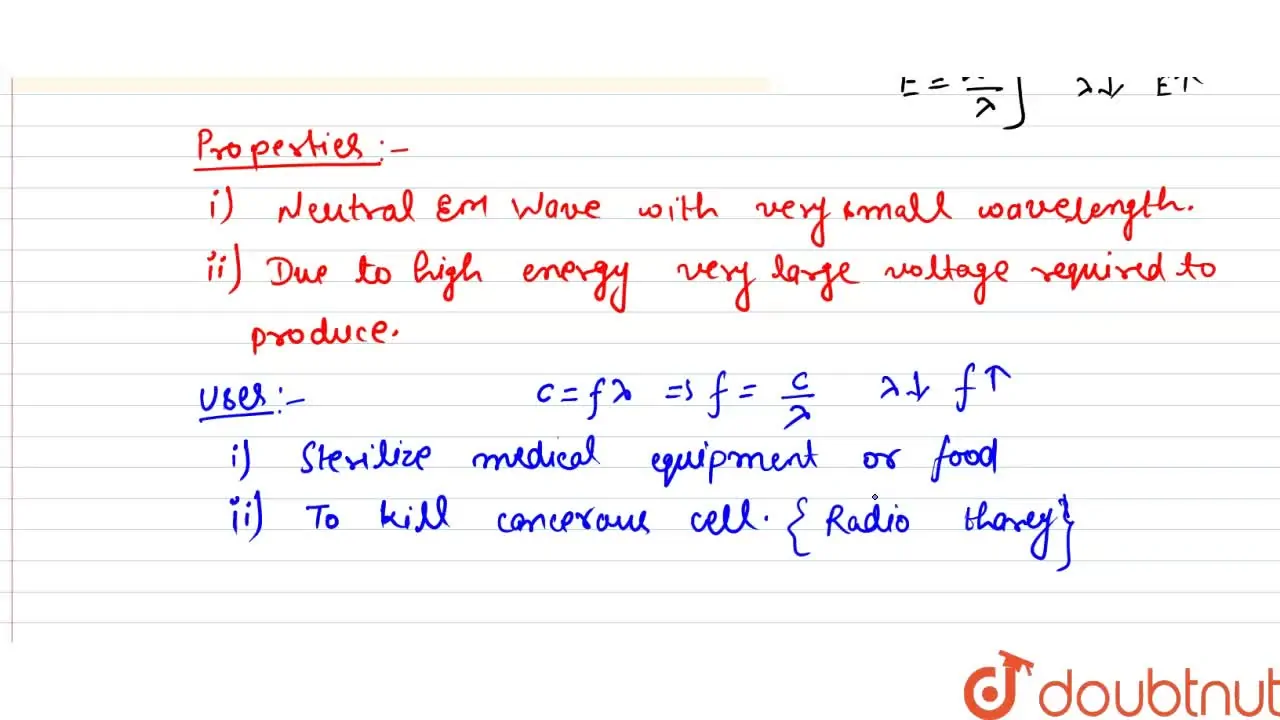 λ↓ E↑
λ
Properties:-
i) Neutral EM Wave with very small wavelength.
ii) Due to high energy very large voltage required to
produce.
Uses:- c = fλ ⇒ f = c/λ λ↓ f↑
i) Sterilize medical equipment or food
ii) To kill cancerous cell. {Radio tharey}
doubtnut